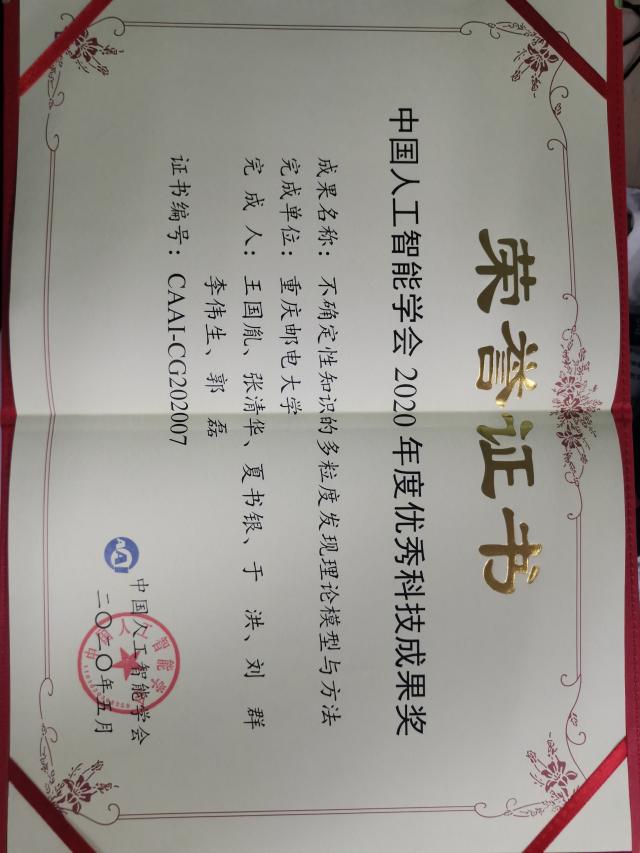 荣誉证书
中国人工智能学会2020年度优秀科技成果奖
成果名称：不确定性知识的多粒度发现理论模型与方法
完成单位：重庆邮电大学
完 成 人：王国胤、张清华、夏书银、于 洪、刘 群
李伟生、郭 磊
证书编号：CAAI-CG202007
中国人工智能学会
二〇二〇年五月